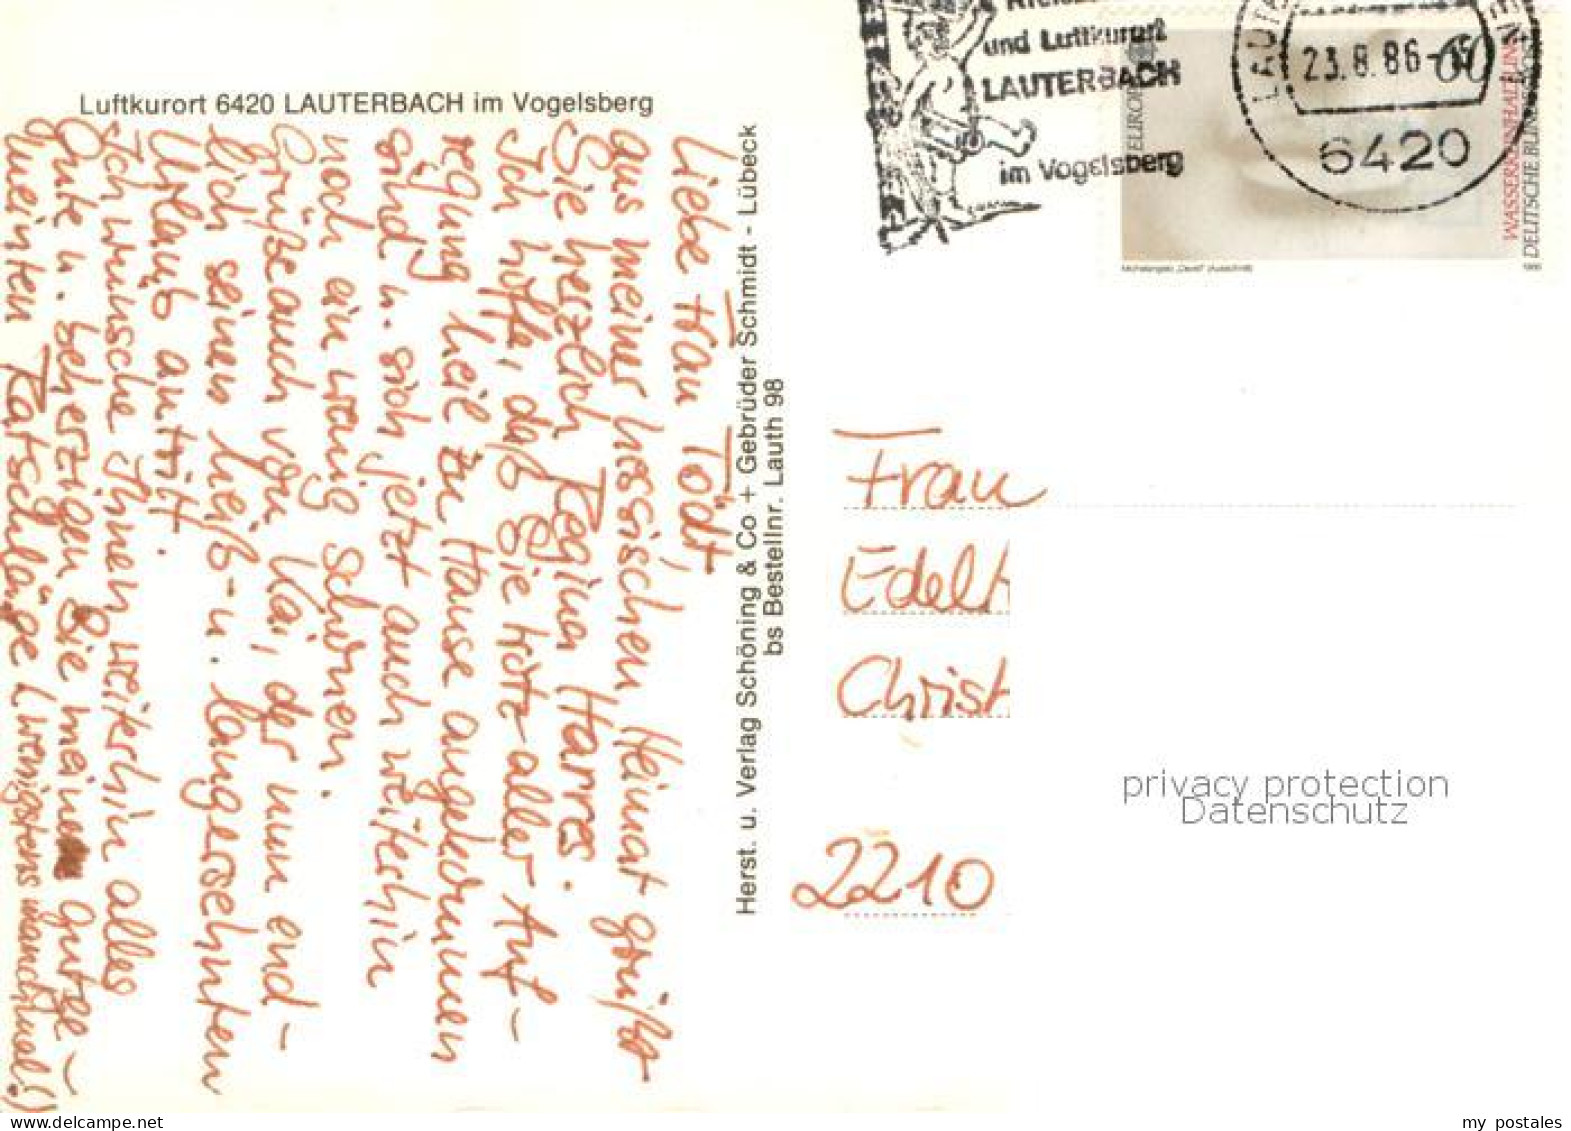 Luftkurort 6420 LAUTERBACH im Vogelsberg
Liebe Frau Tödt,
aus meiner hessischen Heimat grüßt
Sie herzlich Regina Harres.
Ich hoffe, daß Sie trotz aller Auf-
regung heil zu Hause angekommen
sind u. sich jetzt auch weiterhin
noch ein wenig schonen.
Grüße auch von Kai, der nun end-
lich seinen heiß- u. langersehnten
Urlaub antritt.
Ich wünsche Ihnen weiterhin alles
Gute u. beherzigen Sie meine gutge-
meinten Ratschläge (wenigstens manchmal!)
Herst. u. Verlag Schöning & Co + Gebrüder Schmidt - Lübeck
bs Bestellnr. Lauth 98
und Luftkurort
LAUTERBACH
im Vogelsberg
23.8.86-15
6420
60
EUROPA
WASSERREINHALTUNG
DEUTSCHE BUNDESPOST
Michelangelo „David" (Ausschnitt)
1986
Frau
Edelt
Christ
2210
privacy protection
Datenschutz
my postales